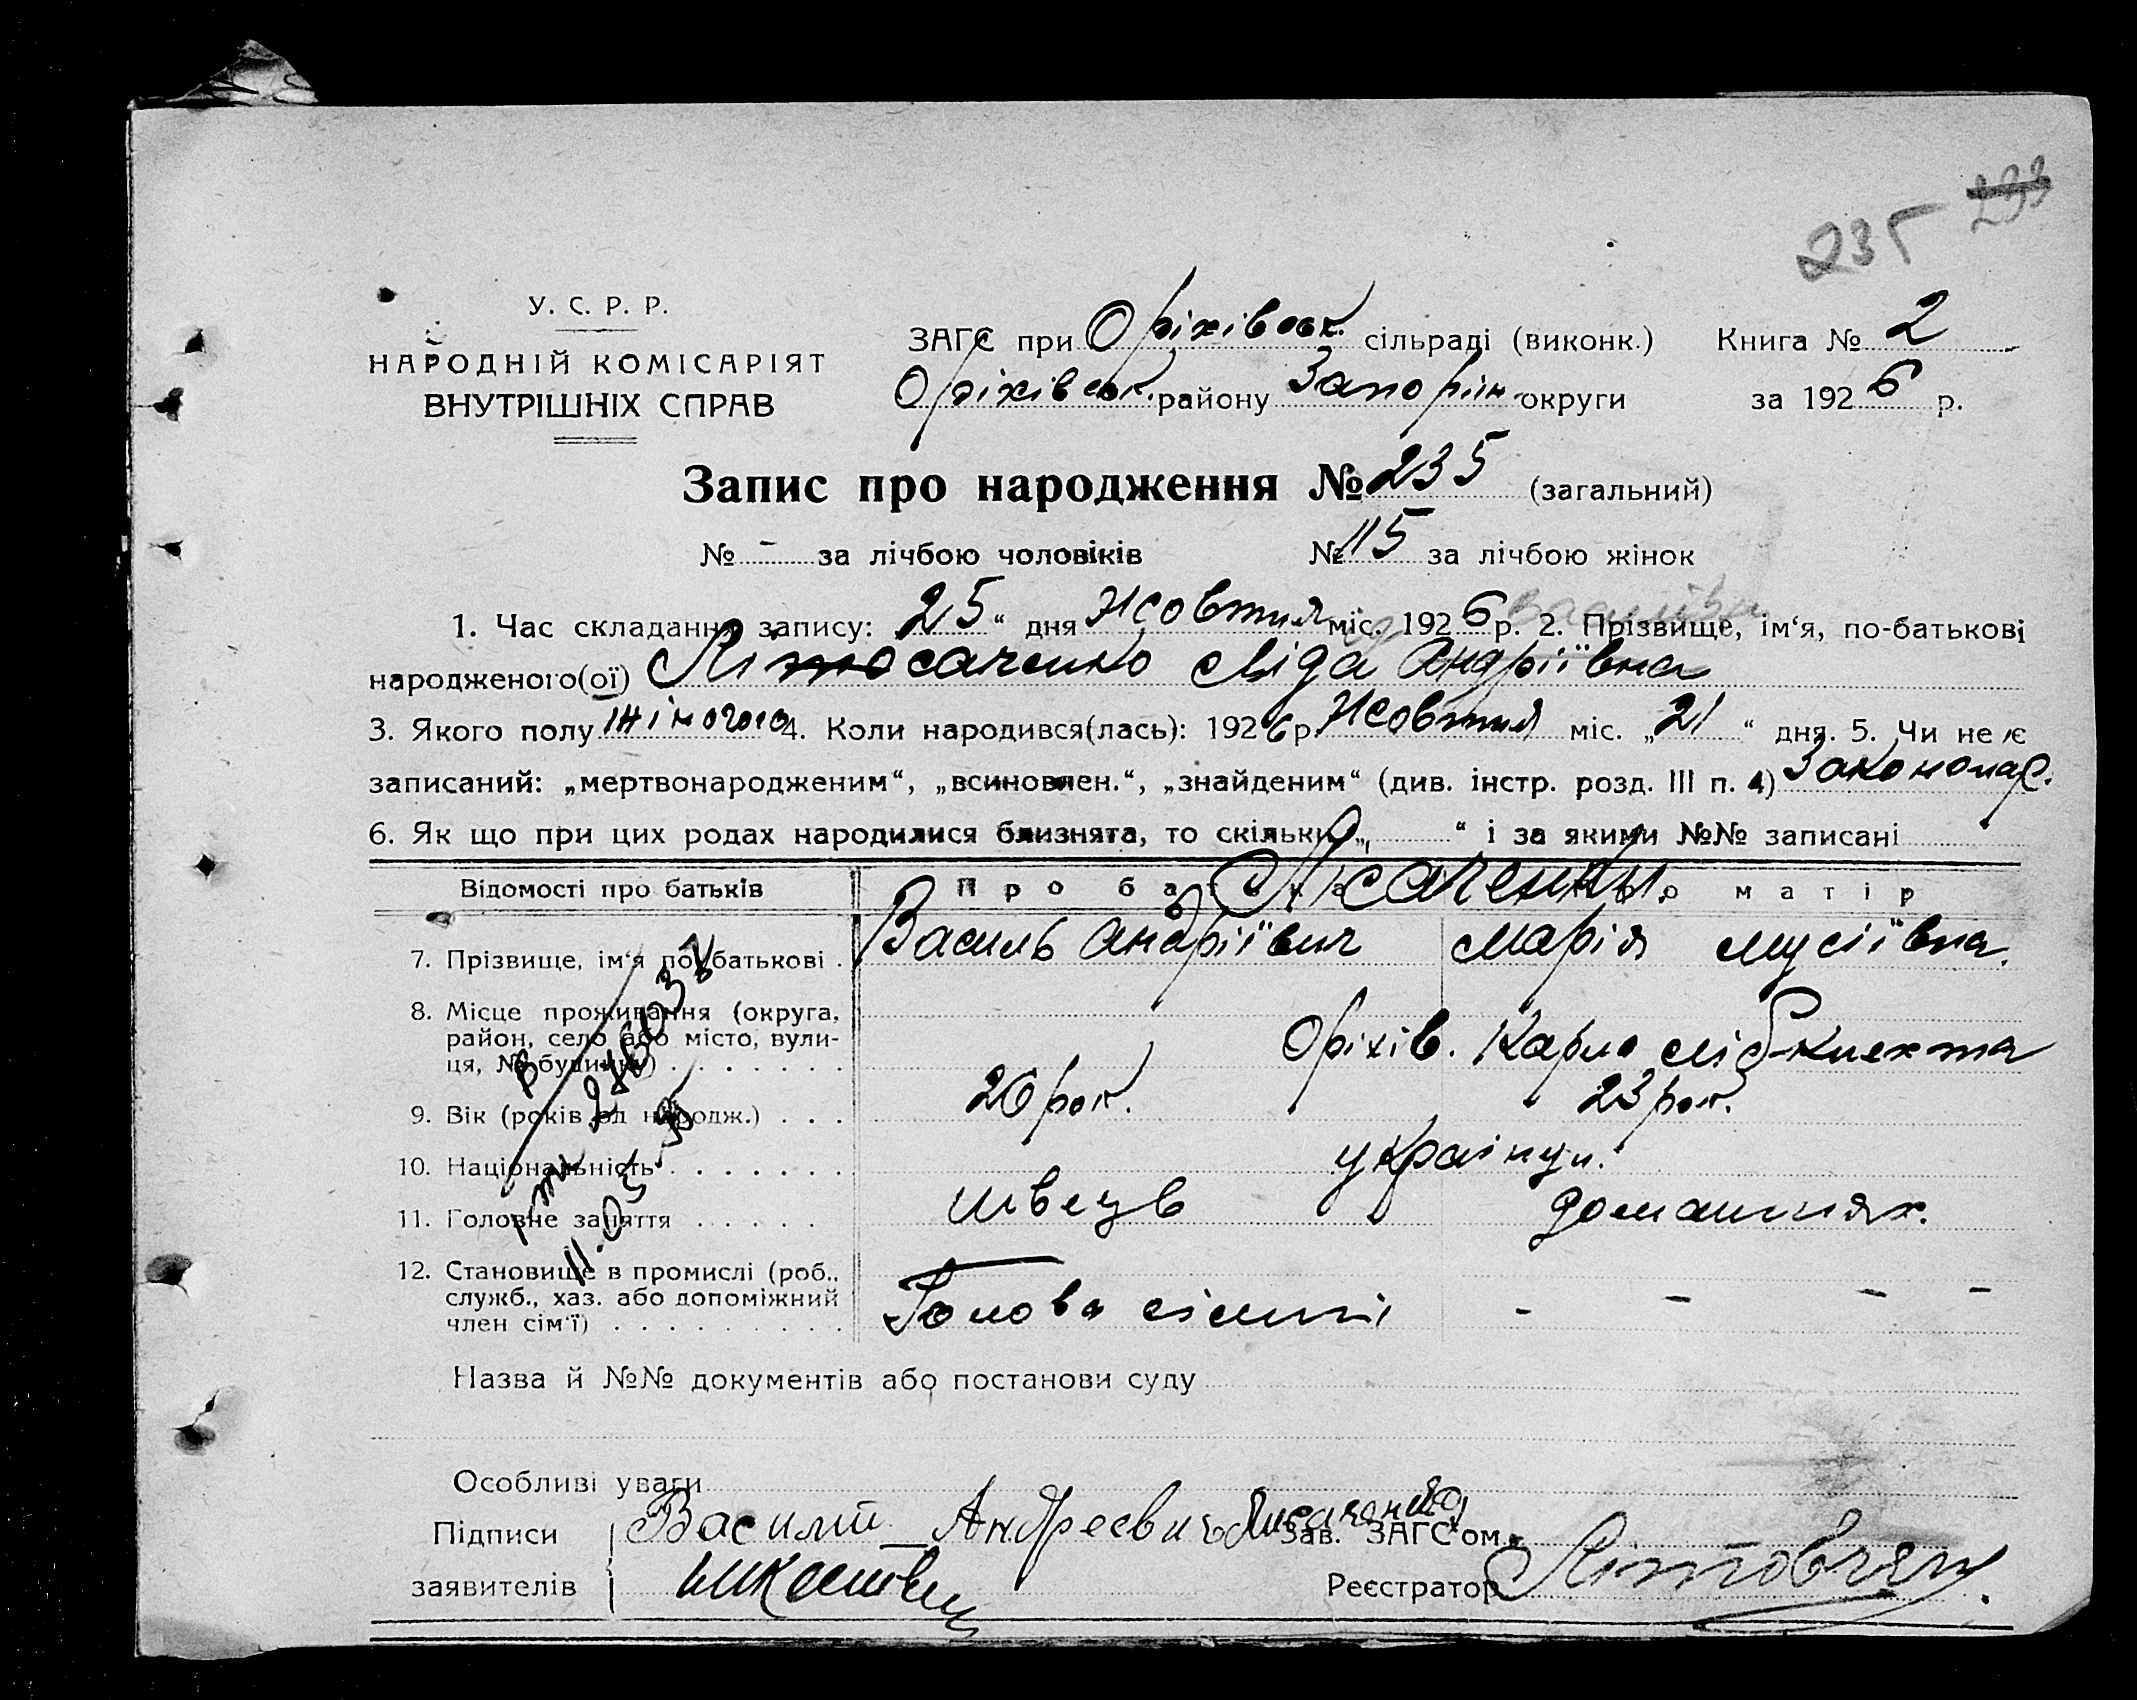 235 233
У. С. Р. Р.
НАРОДНІЙ КОМІСАРІЯТ
ВНУТРІШНІХ СПРАВ
ЗАГС при Оріхівськ. сільраді (виконк.) Книга № 2
Оріхівськ. району Запоріж. округи за 1926 р.
Запис про народження № 235 (загальний)
№ - за лічбою чоловіків № 115 за лічбою жінок
Василівна
1. Час складання запису: 25 “ дня Жовтня міс. 1926 р. 2. Прізвище, ім‘я, по-батькові
народженого(ої) Лісаченко Ліда Андріївна
3. Якого полу жіночого 4. Коли народився(лась): 1926 р. Жовтня міс. „ 21 “ дня. 5. Чи не є
записаний: „мертвонародженим“, „всиновлен.“, „знайденим“ (див. інстр. розд. III п. 4) Закономар.
6. Як що при цих родах народилися близнята, то скільки „ “ і за якими №№ записані
Відомості про батьків Про батька Про матір
Лісаченки
7. Прізвище, ім‘я по-батькові . Василь Андріївич Марія Мусіївна.
8. Місце проживання (округа,
район, село або місто, вули-
ця, № будинку) . . . . . . . Оріхів. Карла Лібкнехта
9. Вік (років од народж.) . . . 26 рок. 23 рок.
10. Національність . . . . . . . українци.
11. Головне заняття . . . . . швець домашнях.
12. Становище в промислі (роб.,
служб., хаз. або допоміжний
член сім‘ї) . . . . . . . . . Голова сімні - - - -
11.05.
Назва й №№ документів або постанови суду
Особливі уваги
Підписи Василий Андреевич Лисаченко Зав. ЗАГС‘ом
заявителів Реєстратор